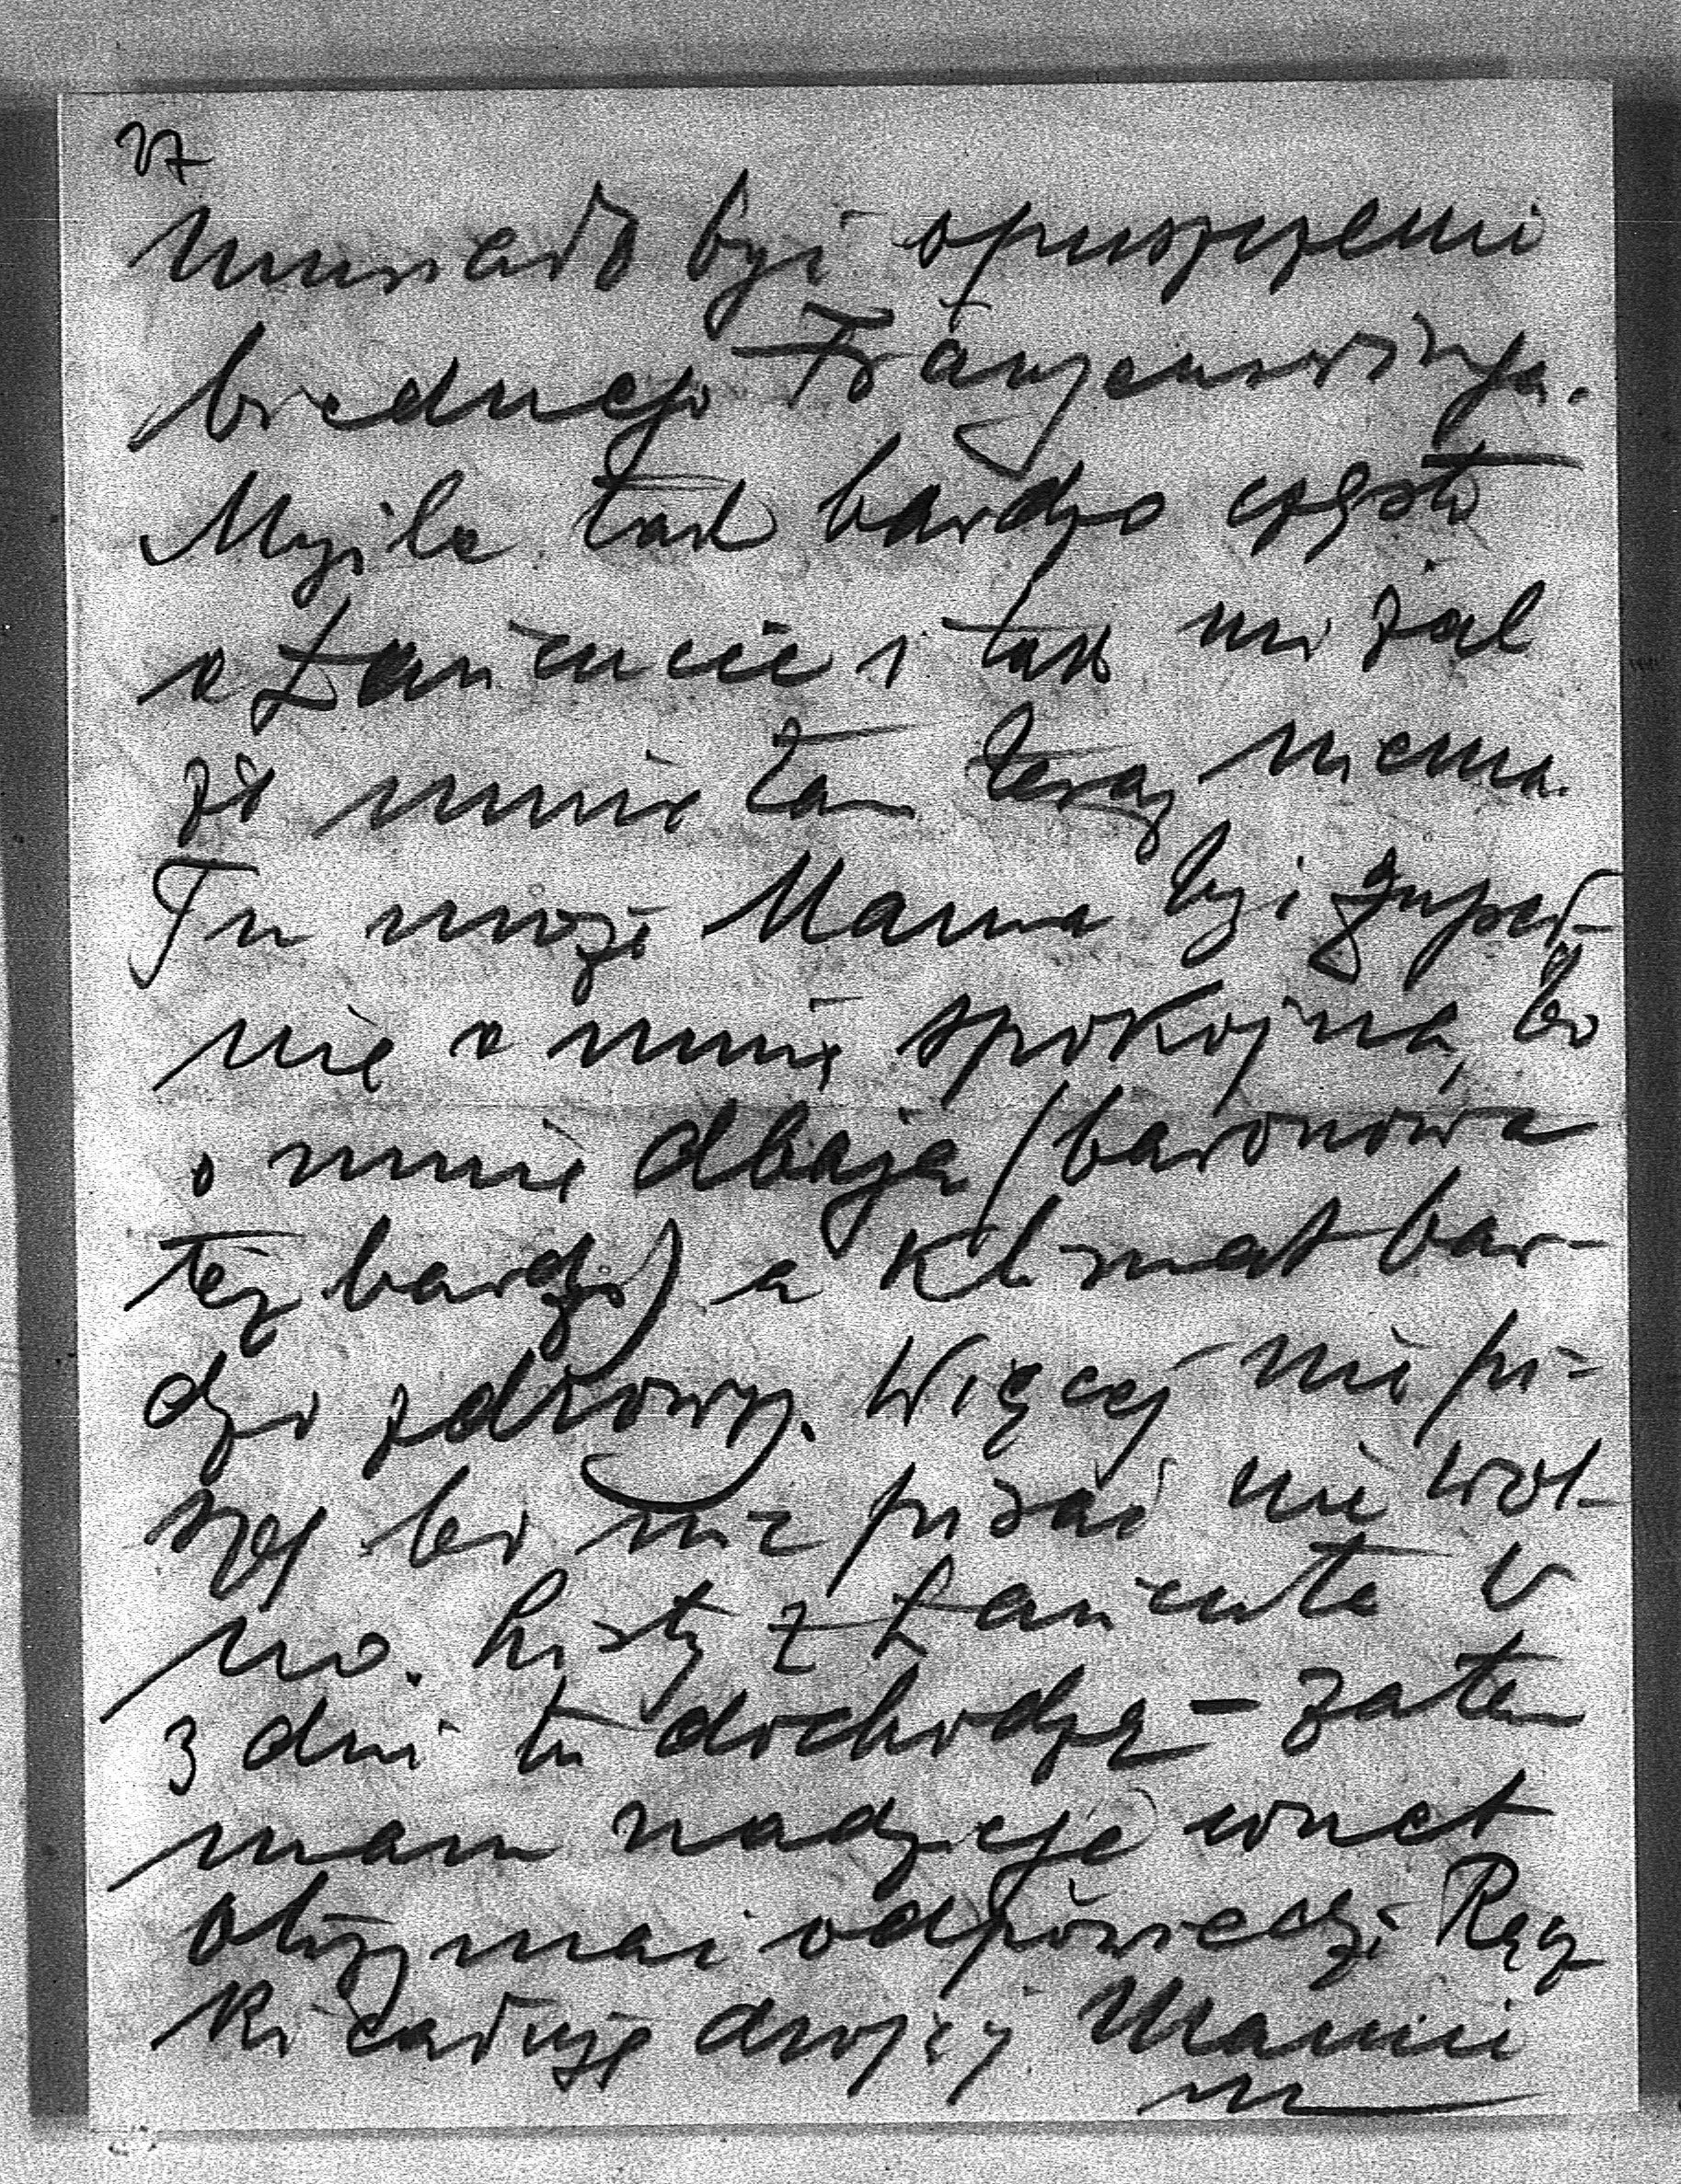 27
musiało być opuszczenie
biednego Franzensringu.
Myślę tak bardzo często
o Łańcucie i tak mi żal
że mnie tam teraz niema.
Tu może Mama być zupeł-
nie o mnie spokojną, bo
o mnie dbają (baronowa
też bardzo) a klimat bar-
dzo zdrowy. Więcej nie pi-
szę bo nic pisać nie wol-
no. Listy z Łańcuta w
3 dni tu dochodzą – zatem
mam nadzieję wnet
otrzymać odpowiedź. Rącz
ki całuję drogiej Mamie